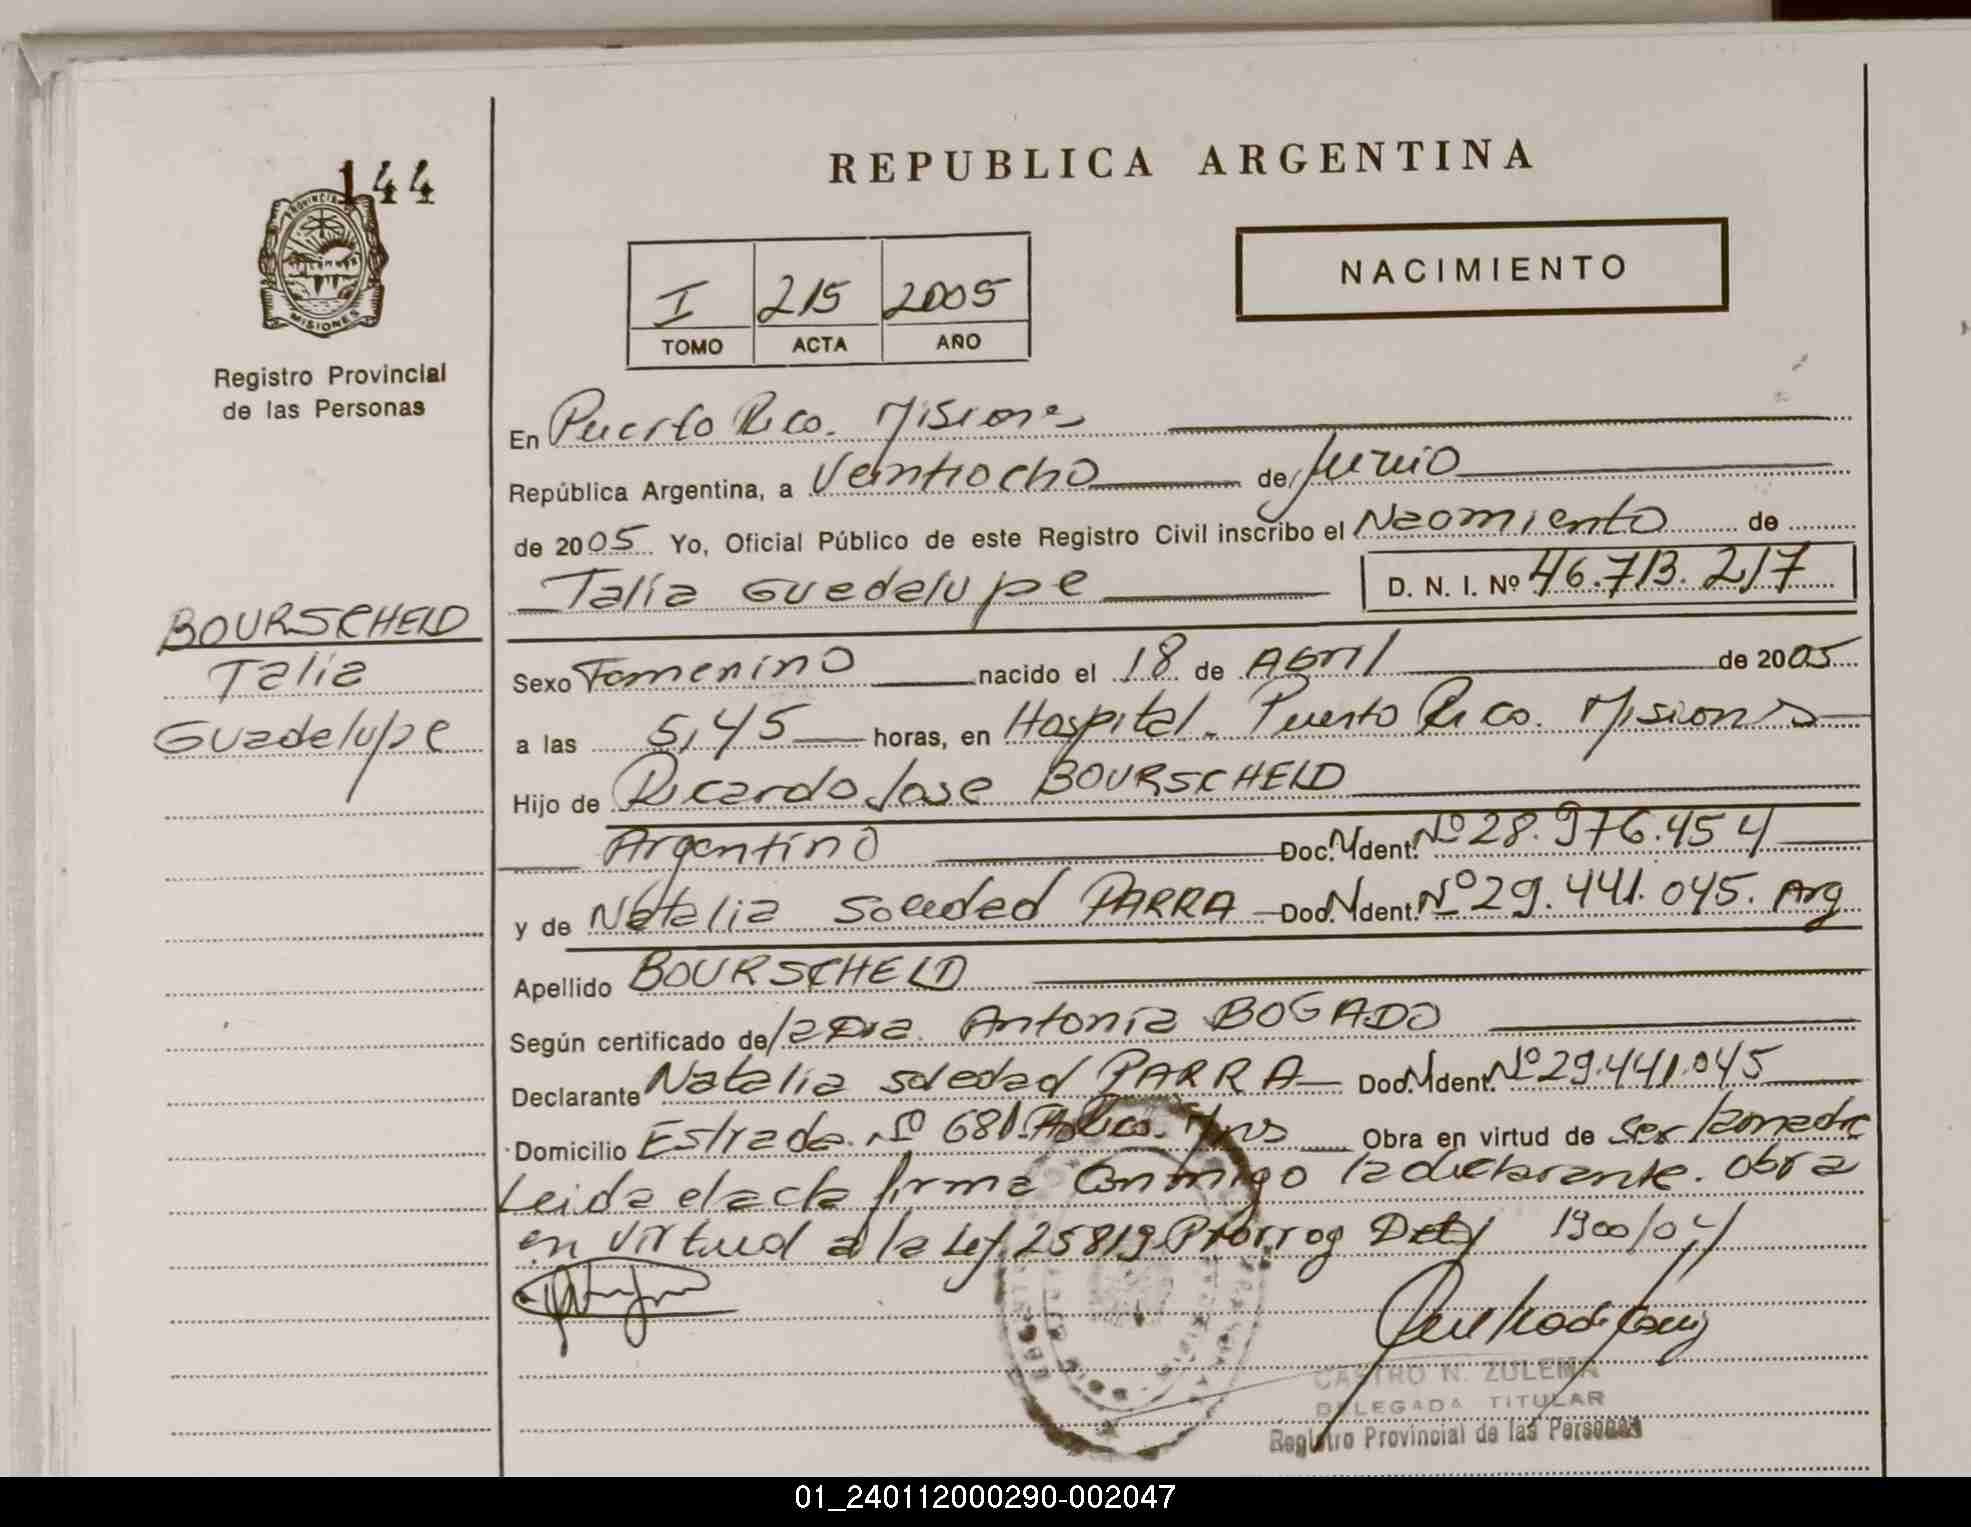 144
PROVINCIA
MISIONES
Registro Provincial
de las Personas
BOURSCHEID
Talia
Guadelupe
REPUBLICA ARGENTINA
NACIMIENTO
I 215 2005
TOMO ACTA AÑO
En Puerto Rico. Misiones
República Argentina, a Veintiocho de Junio
de 2005 Yo, Oficial Público de este Registro Civil inscribo el Nacimiento de
Talia Guadelupe D. N. I. Nº 46.713.217
Sexo Femenino nacido el 18 de Abril de 2005
a las 5,45 horas, en Hospital. Puerto Rico. Misiones
Hijo de Ricardo Jose BOURSCHEID
Argentino Doc. Ident. Nº 28.976.454
y de Natalia Soledad PARRA Doc. Ident. Nº 29.441.045. Arg
Apellido BOURSCHEID
Según certificado de la Dra. Antonia BOGADO
Declarante Natalia Soledad PARRA Doc. Ident. Nº 29.441.045
Domicilio Estrada. Nº 681. Pto Rico. Mns Obra en virtud de ser la madre
Leida el acta firma Conmigo la declarante. Obra
en virtud a la Ley 25819 Prorrog 1900/04
CASTRO N. ZULEMA
DELEGADA TITULAR
Registro Provincial de las Personas
01_240112000290-002047